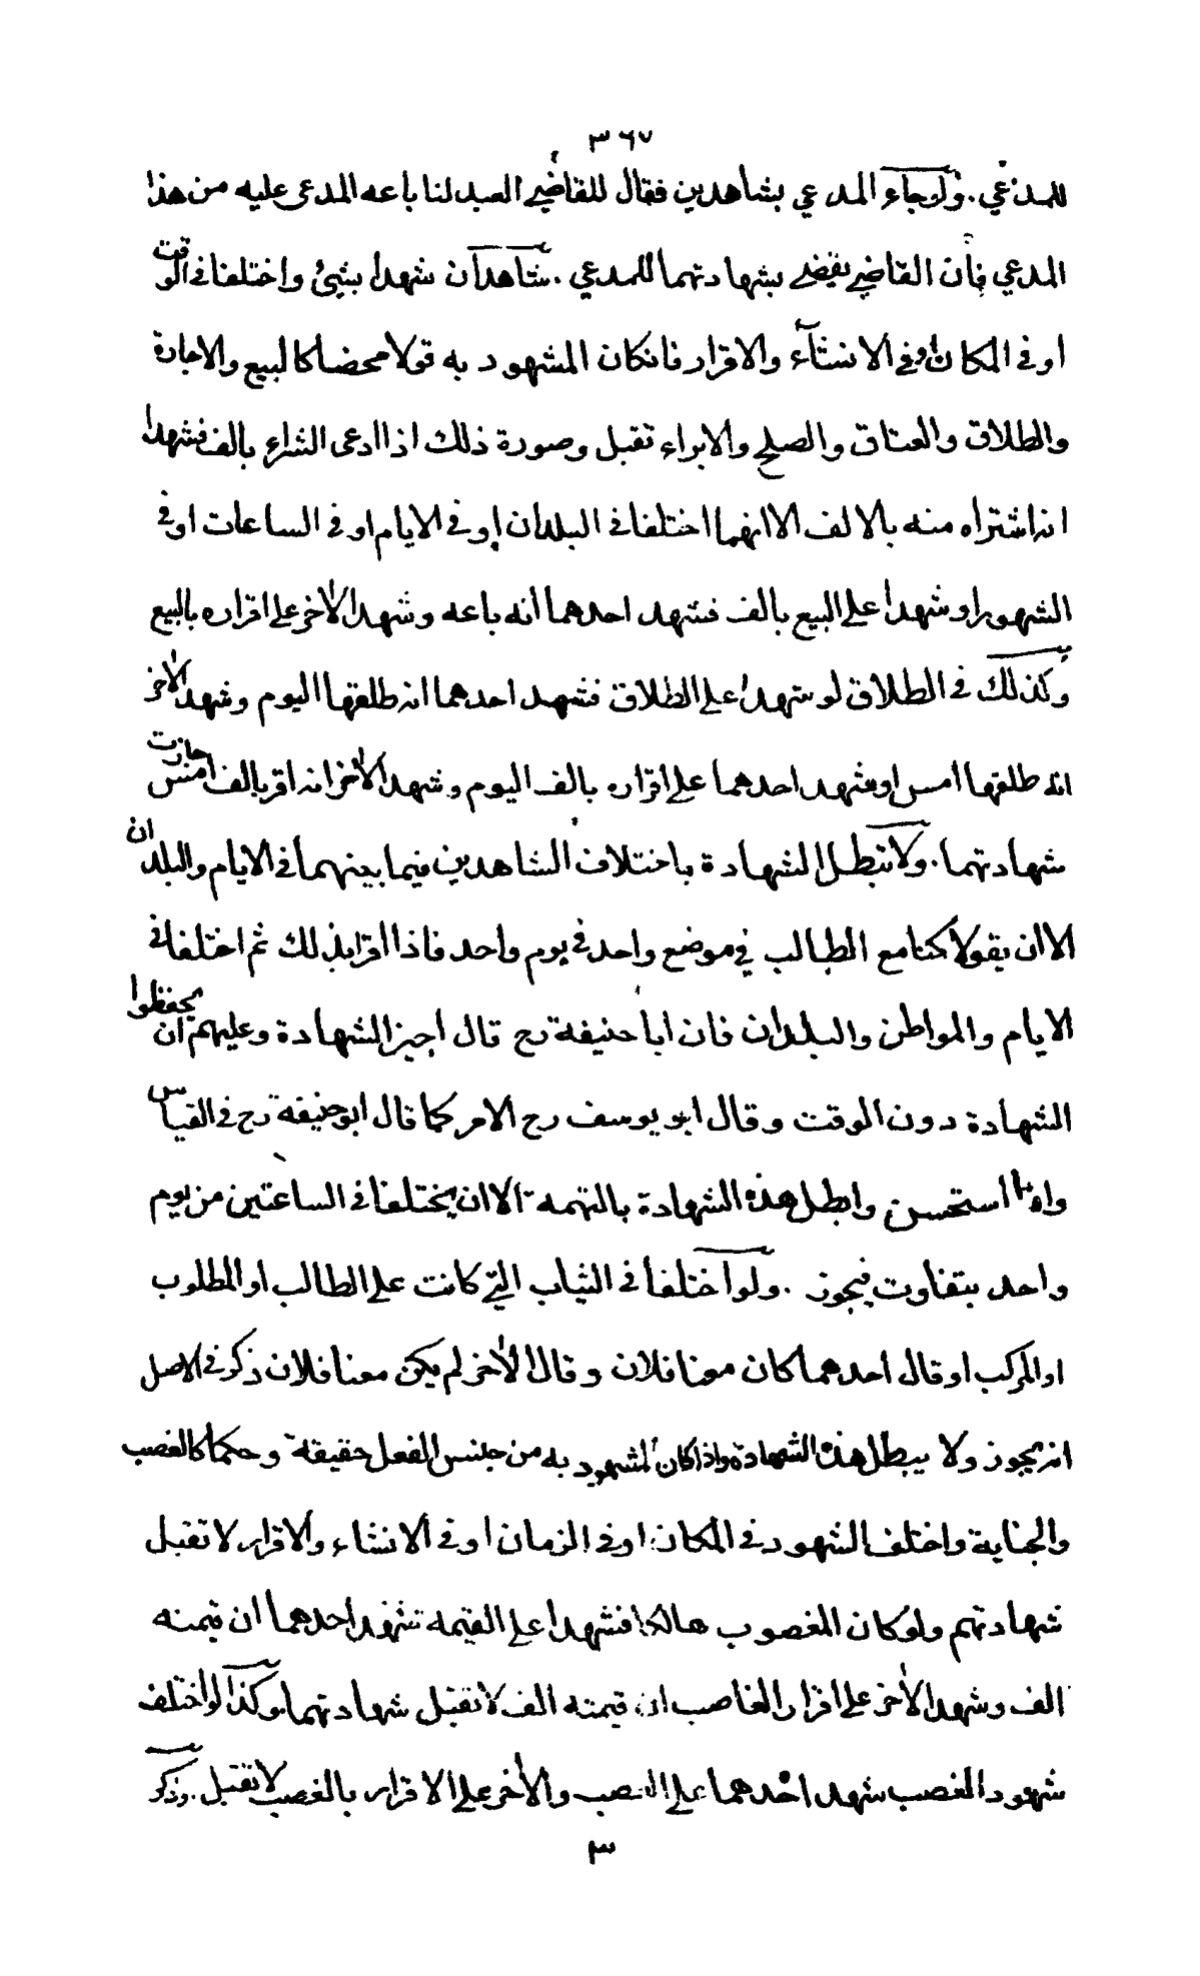 ٣٦٧
للمدعي . ولو جاء المدعي بشاهدين فقال للقاضي العبد لنا باعه المدعى عليه من هذا
المدعي فان القاضي يقضي بشهادتهما للمدعي . شاهدان شهدا بشيئ واختلفا في الوقت
او في المكان او في الانشاء والاقرار فان كان المشهود به قولا محضا كالبيع والاجارة
والطلاق والعتاق والصلح والابراء تقبل وصورة ذلك اذا ادعى الشراء بالف فشهدا
انه اشتراه منه بالالف الا انهما اختلفا في البلدان او في الايام او في الساعات او في
الشهور او شهدا على البيع بالف فشهد احدهما انه باعه وشهد الاخر على اقراره بالبيع
وكذلك في الطلاق لو شهدا على الطلاق فشهد احدهما انه طلقها اليوم وشهد الاخر
انه طلقها امس او شهد احدهما على اقراره بالف اليوم وشهد الاخر انه اقر بالف امس جازت
شهادتهما . ولا تبطل الشهادة باختلاف الشاهدين فيما بينهما في الايام والبلدان
الا ان يقولا كنا مع الطالب في موضع واحد في يوم واحد فاذا اقرا بذلك ثم اختلفا في
الايام والمواطن والبلدان فان ابا حنيفة رح قال اجيز الشهادة وعليهم ان يحفظوا
الشهادة دون الوقت وقال ابو يوسف رح الامر كما قال ابو حنيفة رح في القياس
وانا استحسن وابطل هذه الشهادة بالتهمة الا ان يختلفا في الساعتين من يوم
واحد يتفاوت فيجوز . ولو اختلفا في الثياب التي كانت على الطالب او المطلوب
او المركب او قال احدهما كان معنا فلان وقال الاخر لم يكن معنا فلان ذكر في الاصل
انه يجوز ولا يبطل هذه الشهادة واذا كان المشهود به من جنس الفعل حقيقة وحكما كالغصب
والجناية واختلف الشهود في المكان او في الزمان او في الانشاء والاقرار لا تقبل
شهادتهم ولو كان المغصوب هالكا فشهدا على القيمة شهد احدهما ان قيمته
الف وشهد الاخر على اقرار الغاصب ان قيمته الف لا تقبل شهادتهما وكذا لو اختلف
شهود الغصب شهد احدهما على الغصب والاخر على الاقرار بالغصب لا تقبل . وذكر
٣